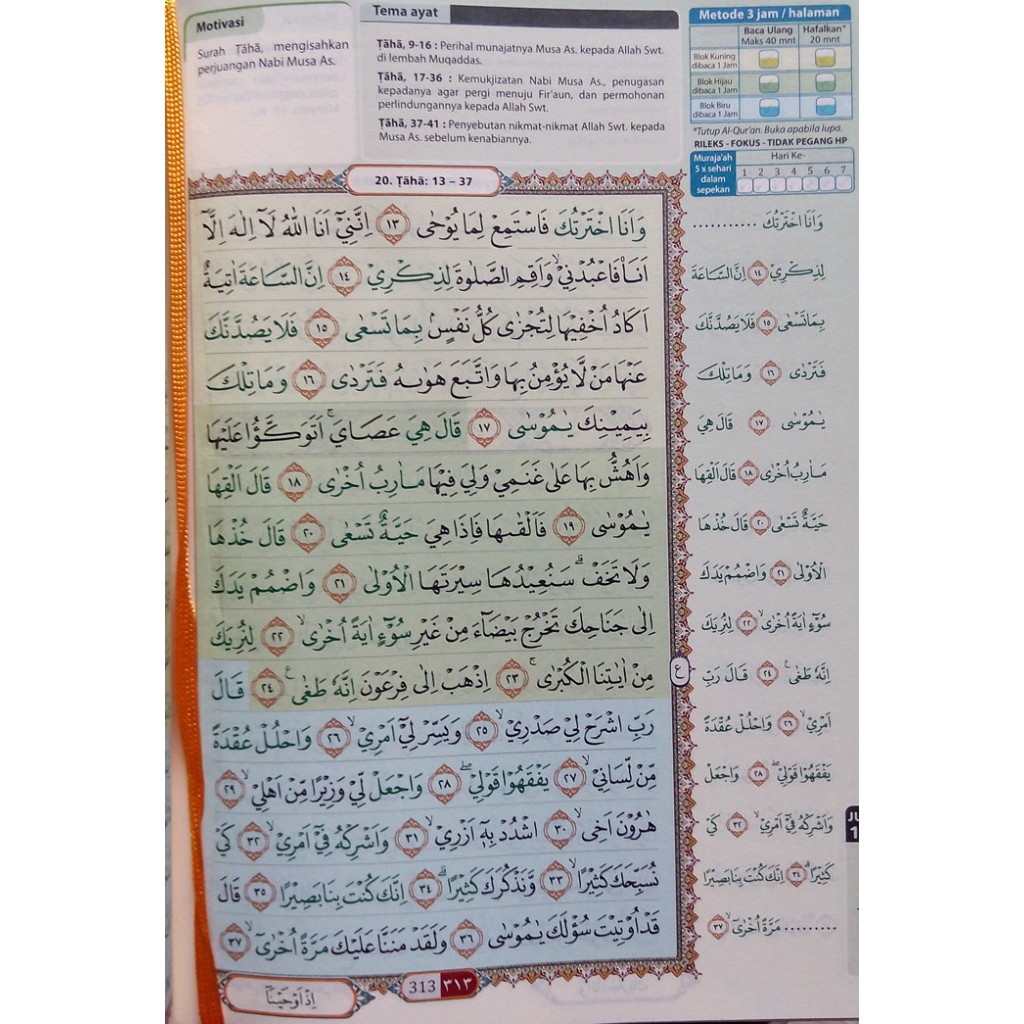 Motivasi
Surah Ṭāhā, mengisahkan
perjuangan Nabi Musa As.
Tema ayat
Ṭāhā, 9-16 : Perihal munajatnya Musa As. kepada Allah Swt.
di lembah Muqaddas.
Ṭāhā, 17-36 : Kemukjizatan Nabi Musa As., penugasan
kepadanya agar pergi menuju Fir'aun, dan permohonan
perlindungannya kepada Allah Swt.
Ṭāhā, 37-41 : Penyebutan nikmat-nikmat Allah Swt. kepada
Musa As. sebelum kenabiannya.
Metode 3 jam / halaman
Baca Ulang Maks 40 mnt
Hafalkan* 20 mnt
Blok Kuning dibaca 1 Jam
Blok Hijau dibaca 1 Jam
Blok Biru dibaca 1 Jam
*Tutup Al-Qur'an. Buka apabila lupa.
RILEKS - FOKUS - TIDAK PEGANG HP
Muraja'ah 5 x sehari dalam sepekan
Hari Ke-
1 2 3 4 5 6 7
20. Ṭāhā: 13 – 37
وَاَنَا اخْتَرْتُكَ فَاسْتَمِعْ لِمَا يُوْحٰى ١٣ اِنَّنِيْٓ اَنَا اللّٰهُ لَآ اِلٰهَ اِلَّآ
اَنَا۠ فَاعْبُدْنِيْۙ وَاَقِمِ الصَّلٰوةَ لِذِكْرِيْ ١٤ اِنَّ السَّاعَةَ اٰتِيَةٌ
اَكَادُ اُخْفِيْهَا لِتُجْزٰى كُلُّ نَفْسٍۢ بِمَا تَسْعٰى ١٥ فَلَا يَصُدَّنَّكَ
عَنْهَا مَنْ لَّا يُؤْمِنُ بِهَا وَاتَّبَعَ هَوٰىهُ فَتَرْدٰى ١٦ وَمَا تِلْكَ
بِيَمِيْنِكَ يٰمُوْسٰى ١٧ قَالَ هِيَ عَصَايَۚ اَتَوَكَّؤُا عَلَيْهَا
وَاَهُشُّ بِهَا عَلٰى غَنَمِيْ وَلِيَ فِيْهَا مَاٰرِبُ اُخْرٰى ١٨ قَالَ اَلْقِهَا
يٰمُوْسٰى ١٩ فَاَلْقٰىهَا فَاِذَا هِيَ حَيَّةٌ تَسْعٰى ٢٠ قَالَ خُذْهَا
وَلَا تَخَفْۗ سَنُعِيْدُهَا سِيْرَتَهَا الْاُوْلٰى ٢١ وَاضْمُمْ يَدَكَ
اِلٰى جَنَاحِكَ تَخْرُجْ بَيْضَاۤءَ مِنْ غَيْرِ سُوْۤءٍ اٰيَةً اُخْرٰىۙ ٢٢ لِنُرِيَكَ
مِنْ اٰيٰتِنَا الْكُبْرٰىۚ ٢٣ اِذْهَبْ اِلٰى فِرْعَوْنَ اِنَّهٗ طَغٰىࣖ ٢٤ قَالَ
رَبِّ اشْرَحْ لِيْ صَدْرِيْۙ ٢٥ وَيَسِّرْ لِيْٓ اَمْرِيْۙ ٢٦ وَاحْلُلْ عُقْدَةً
مِّنْ لِّسَانِيْۙ ٢٧ يَفْقَهُوْا قَوْلِيْۖ ٢٨ وَاجْعَلْ لِّيْ وَزِيْرًا مِّنْ اَهْلِيْۙ ٢٩
هٰرُوْنَ اَخِىۙ ٣٠ اشْدُدْ بِهٖٓ اَزْرِيْۙ ٣١ وَاَشْرِكْهُ فِيْٓ اَمْرِيْۙ ٣٢ كَيْ
نُسَبِّحَكَ كَثِيْرًاۙ ٣٣ وَّنَذْكُرَكَ كَثِيْرًاۗ ٣٤ اِنَّكَ كُنْتَ بِنَا بَصِيْرًا ٣٥ قَالَ
قَدْ اُوْتِيْتَ سُؤْلَكَ يٰمُوْسٰى ٣٦ وَلَقَدْ مَنَنَّا عَلَيْكَ مَرَّةً اُخْرٰىٓ ٣٧
وَاَنَا اخْتَرْتُكَ ...........
لِذِكْرِيْ ١٤ اِنَّ السَّاعَةَ
بِمَا تَسْعٰى ١٥ فَلَا يَصُدَّنَّكَ
فَتَرْدٰى ١٦ وَمَا تِلْكَ
يٰمُوْسٰى ١٧ قَالَ هِيَ
مَاٰرِبُ اُخْرٰى ١٨ قَالَ اَلْقِهَا
حَيَّةٌ تَسْعٰى ٢٠ قَالَ خُذْهَا
الْاُوْلٰى ٢١ وَاضْمُمْ يَدَكَ
سُوْۤءٍ اٰيَةً اُخْرٰىۙ ٢٢ لِنُرِيَكَ
اِنَّهٗ طَغٰىࣖ ٢٤ قَالَ رَبِّ
اَمْرِيْۙ ٢٦ وَاحْلُلْ عُقْدَةً
يَفْقَهُوْا قَوْلِيْۖ ٢٨ وَاجْعَلْ
وَاَشْرِكْهُ فِيْٓ اَمْرِيْۙ ٣٢ كَيْ
كَثِيْرًاۗ ٣٤ اِنَّكَ كُنْتَ بِنَا بَصِيْرًا
........... مَرَّةً اُخْرٰىٓ ٣٧
ع
313 ٣١٣
اِذْ اَوْحَيْنَآ